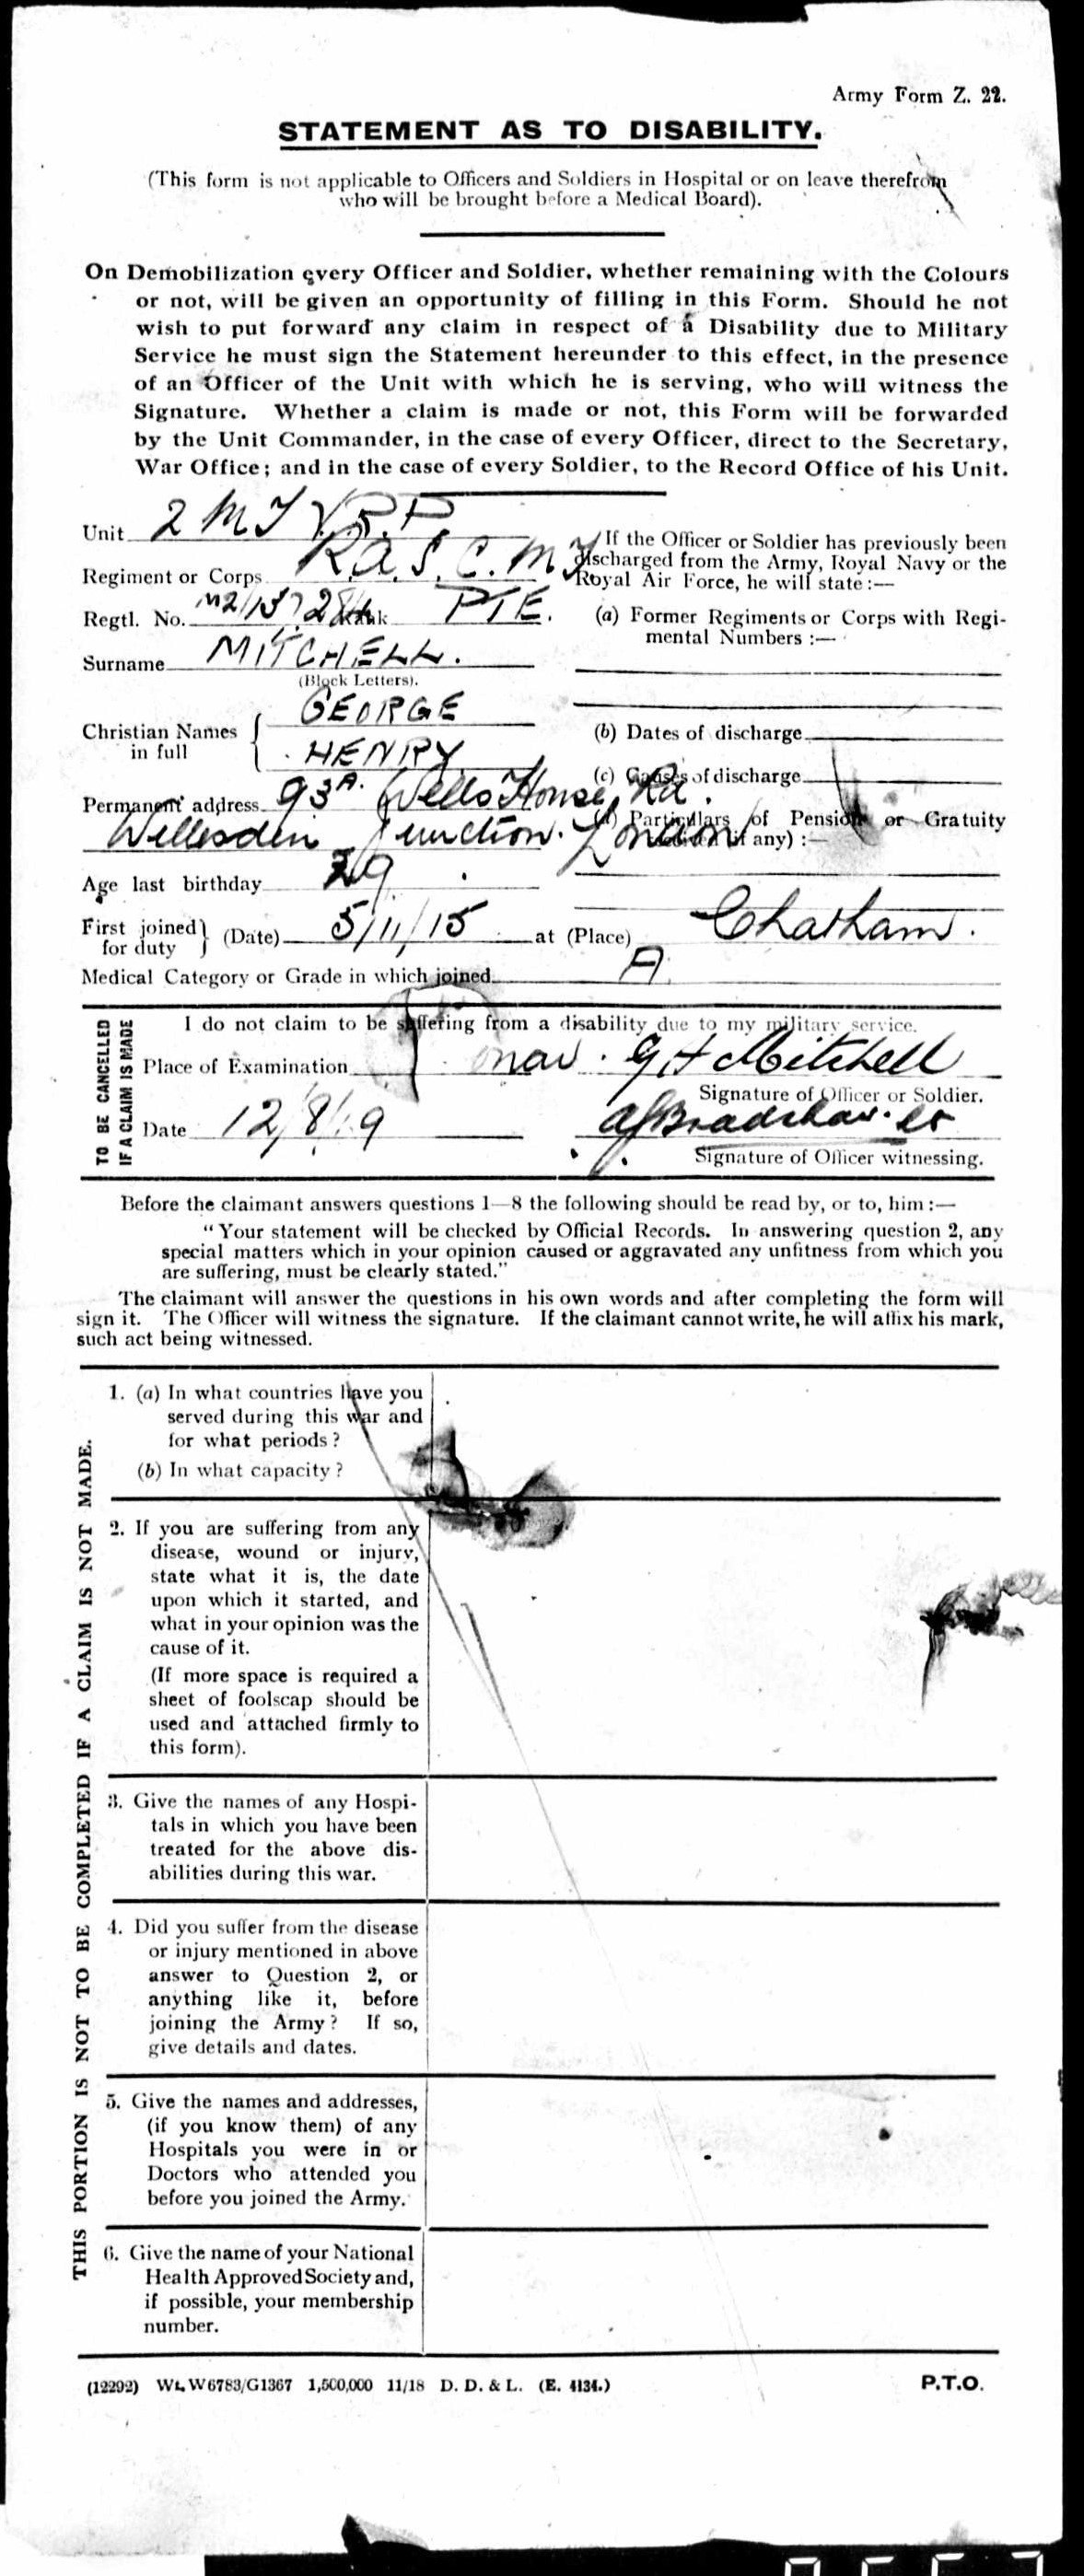 Army Form Z. 22.
STATEMENT AS TO DISABILITY.
(This form is not applicable to Officers and Soldiers in Hospital or on leave therefrom
who will be brought before a Medical Board).
On Demobilization every Officer and Soldier, whether remaining with the Colours
or not, will be given an opportunity of filling in this Form. Should he not
wish to put forward any claim in respect of a Disability due to Military
Service he must sign the Statement hereunder to this effect, in the presence
of an Officer of the Unit with which he is serving, who will witness the
Signature. Whether a claim is made or not, this Form will be forwarded
by the Unit Commander, in the case of every Officer, direct to the Secretary,
War Office; and in the case of every Soldier, to the Record Office of his Unit.
Unit 2 M T V.R.P
Regiment or Corps R.A.S.C. M T
Regtl. No. Rank PTE.
Surname MITCHELL.
(Block Letters).
Christian Names in full GEORGE
HENRY
Permanent address 93A. Wells House Rd.
Willesden Junction. London
Age last birthday 29
If the Officer or Soldier has previously been
discharged from the Army, Royal Navy or the
Royal Air Force, he will state :—
(a) Former Regiments or Corps with Regi-
mental Numbers :—
(b) Dates of discharge
(c) Causes of discharge
(d) Particulars of Pension or Gratuity
(if any) :—
First joined for duty } (Date) 5/11/15 at (Place) Chatham.
Medical Category or Grade in which joined A
TO BE CANCELLED
IF A CLAIM IS MADE
I do not claim to be suffering from a disability due to my military service.
Place of Examination G H Mitchell
Signature of Officer or Soldier.
Date 12/8/19 Bradshaw
Signature of Officer witnessing.
Before the claimant answers questions 1—8 the following should be read by, or to, him :—
"Your statement will be checked by Official Records. In answering question 2, any
special matters which in your opinion caused or aggravated any unfitness from which you
are suffering, must be clearly stated."
The claimant will answer the questions in his own words and after completing the form will
sign it. The Officer will witness the signature. If the claimant cannot write, he will affix his mark,
such act being witnessed.
THIS PORTION IS NOT TO BE COMPLETED IF A CLAIM IS NOT MADE.
1. (a) In what countries have you
served during this war and
for what periods?
(b) In what capacity?
2. If you are suffering from any
disease, wound or injury,
state what it is, the date
upon which it started, and
what in your opinion was the
cause of it.
(If more space is required a
sheet of foolscap should be
used and attached firmly to
this form).
3. Give the names of any Hospi-
tals in which you have been
treated for the above dis-
abilities during this war.
4. Did you suffer from the disease
or injury mentioned in above
answer to Question 2, or
anything like it, before
joining the Army? If so,
give details and dates.
5. Give the names and addresses,
(if you know them) of any
Hospitals you were in or
Doctors who attended you
before you joined the Army.
6. Give the name of your National
Health Approved Society and,
if possible, your membership
number.
(12292) Wt. W6783/G1367 1,500,000 11/18 D. D. & L. (E. 4134.)
P.T.O.